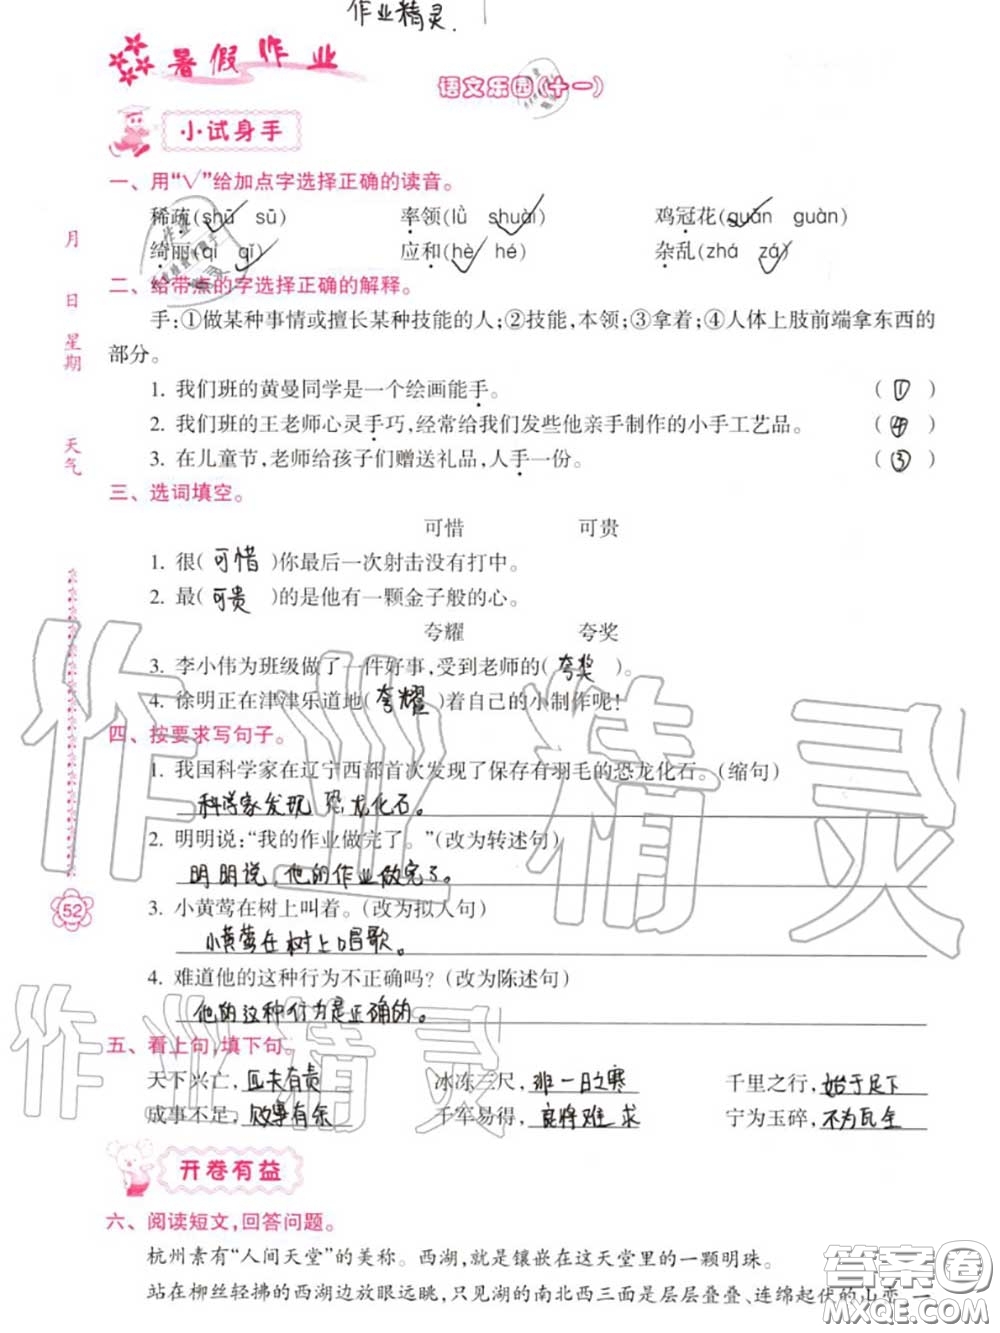 作业精灵.
暑假作业
语文乐园(十一)
小试身手
一、用“√”给加点字选择正确的读音。
稀疏(shū sū) 率领(lǜ shuài) 鸡冠花(guān guàn)
绮丽(qí qǐ) 应和(hè hé) 杂乱(zhá zá)
二、给带点的字选择正确的解释。
手:①做某种事情或擅长某种技能的人;②技能,本领;③拿着;④人体上肢前端拿东西的
部分。
1. 我们班的黄曼同学是一个绘画能手。 ( ① )
2. 我们班的王老师心灵手巧,经常给我们发些他亲手制作的小手工艺品。 ( ④ )
3. 在儿童节,老师给孩子们赠送礼品,人手一份。 ( ③ )
三、选词填空。
可惜 可贵
1. 很( 可惜 )你最后一次射击没有打中。
2. 最( 可贵 )的是他有一颗金子般的心。
夸耀 夸奖
3. 李小伟为班级做了一件好事,受到老师的( 夸奖 )。
4. 徐明正在津津乐道地( 夸耀 )着自己的小制作呢!
四、按要求写句子。
1. 我国科学家在辽宁西部首次发现了保存有羽毛的恐龙化石。(缩句)
科学家发现恐龙化石。
2. 明明说:“我的作业做完了。”(改为转述句)
明明说,他的作业做完了。
3. 小黄莺在树上叫着。(改为拟人句)
小黄莺在树上唱歌。
4. 难道他的这种行为不正确吗?(改为陈述句)
他的这种行为是正确的。
五、看上句,填下句。
天下兴亡,匹夫有责 冰冻三尺,非一日之寒 千里之行,始于足下
成事不足,败事有余 千军易得,良将难求 宁为玉碎,不为瓦全
开卷有益
六、阅读短文,回答问题。
杭州素有“人间天堂”的美称。西湖,就是镶嵌在这天堂里的一颗明珠。
站在柳丝轻拂的西湖边放眼远眺,只见湖的南北西三面是层层叠叠、连绵起伏的山峦,一
月
日
星期
天气
52
作业精灵
作业精灵
答案圈
MXQE.COM